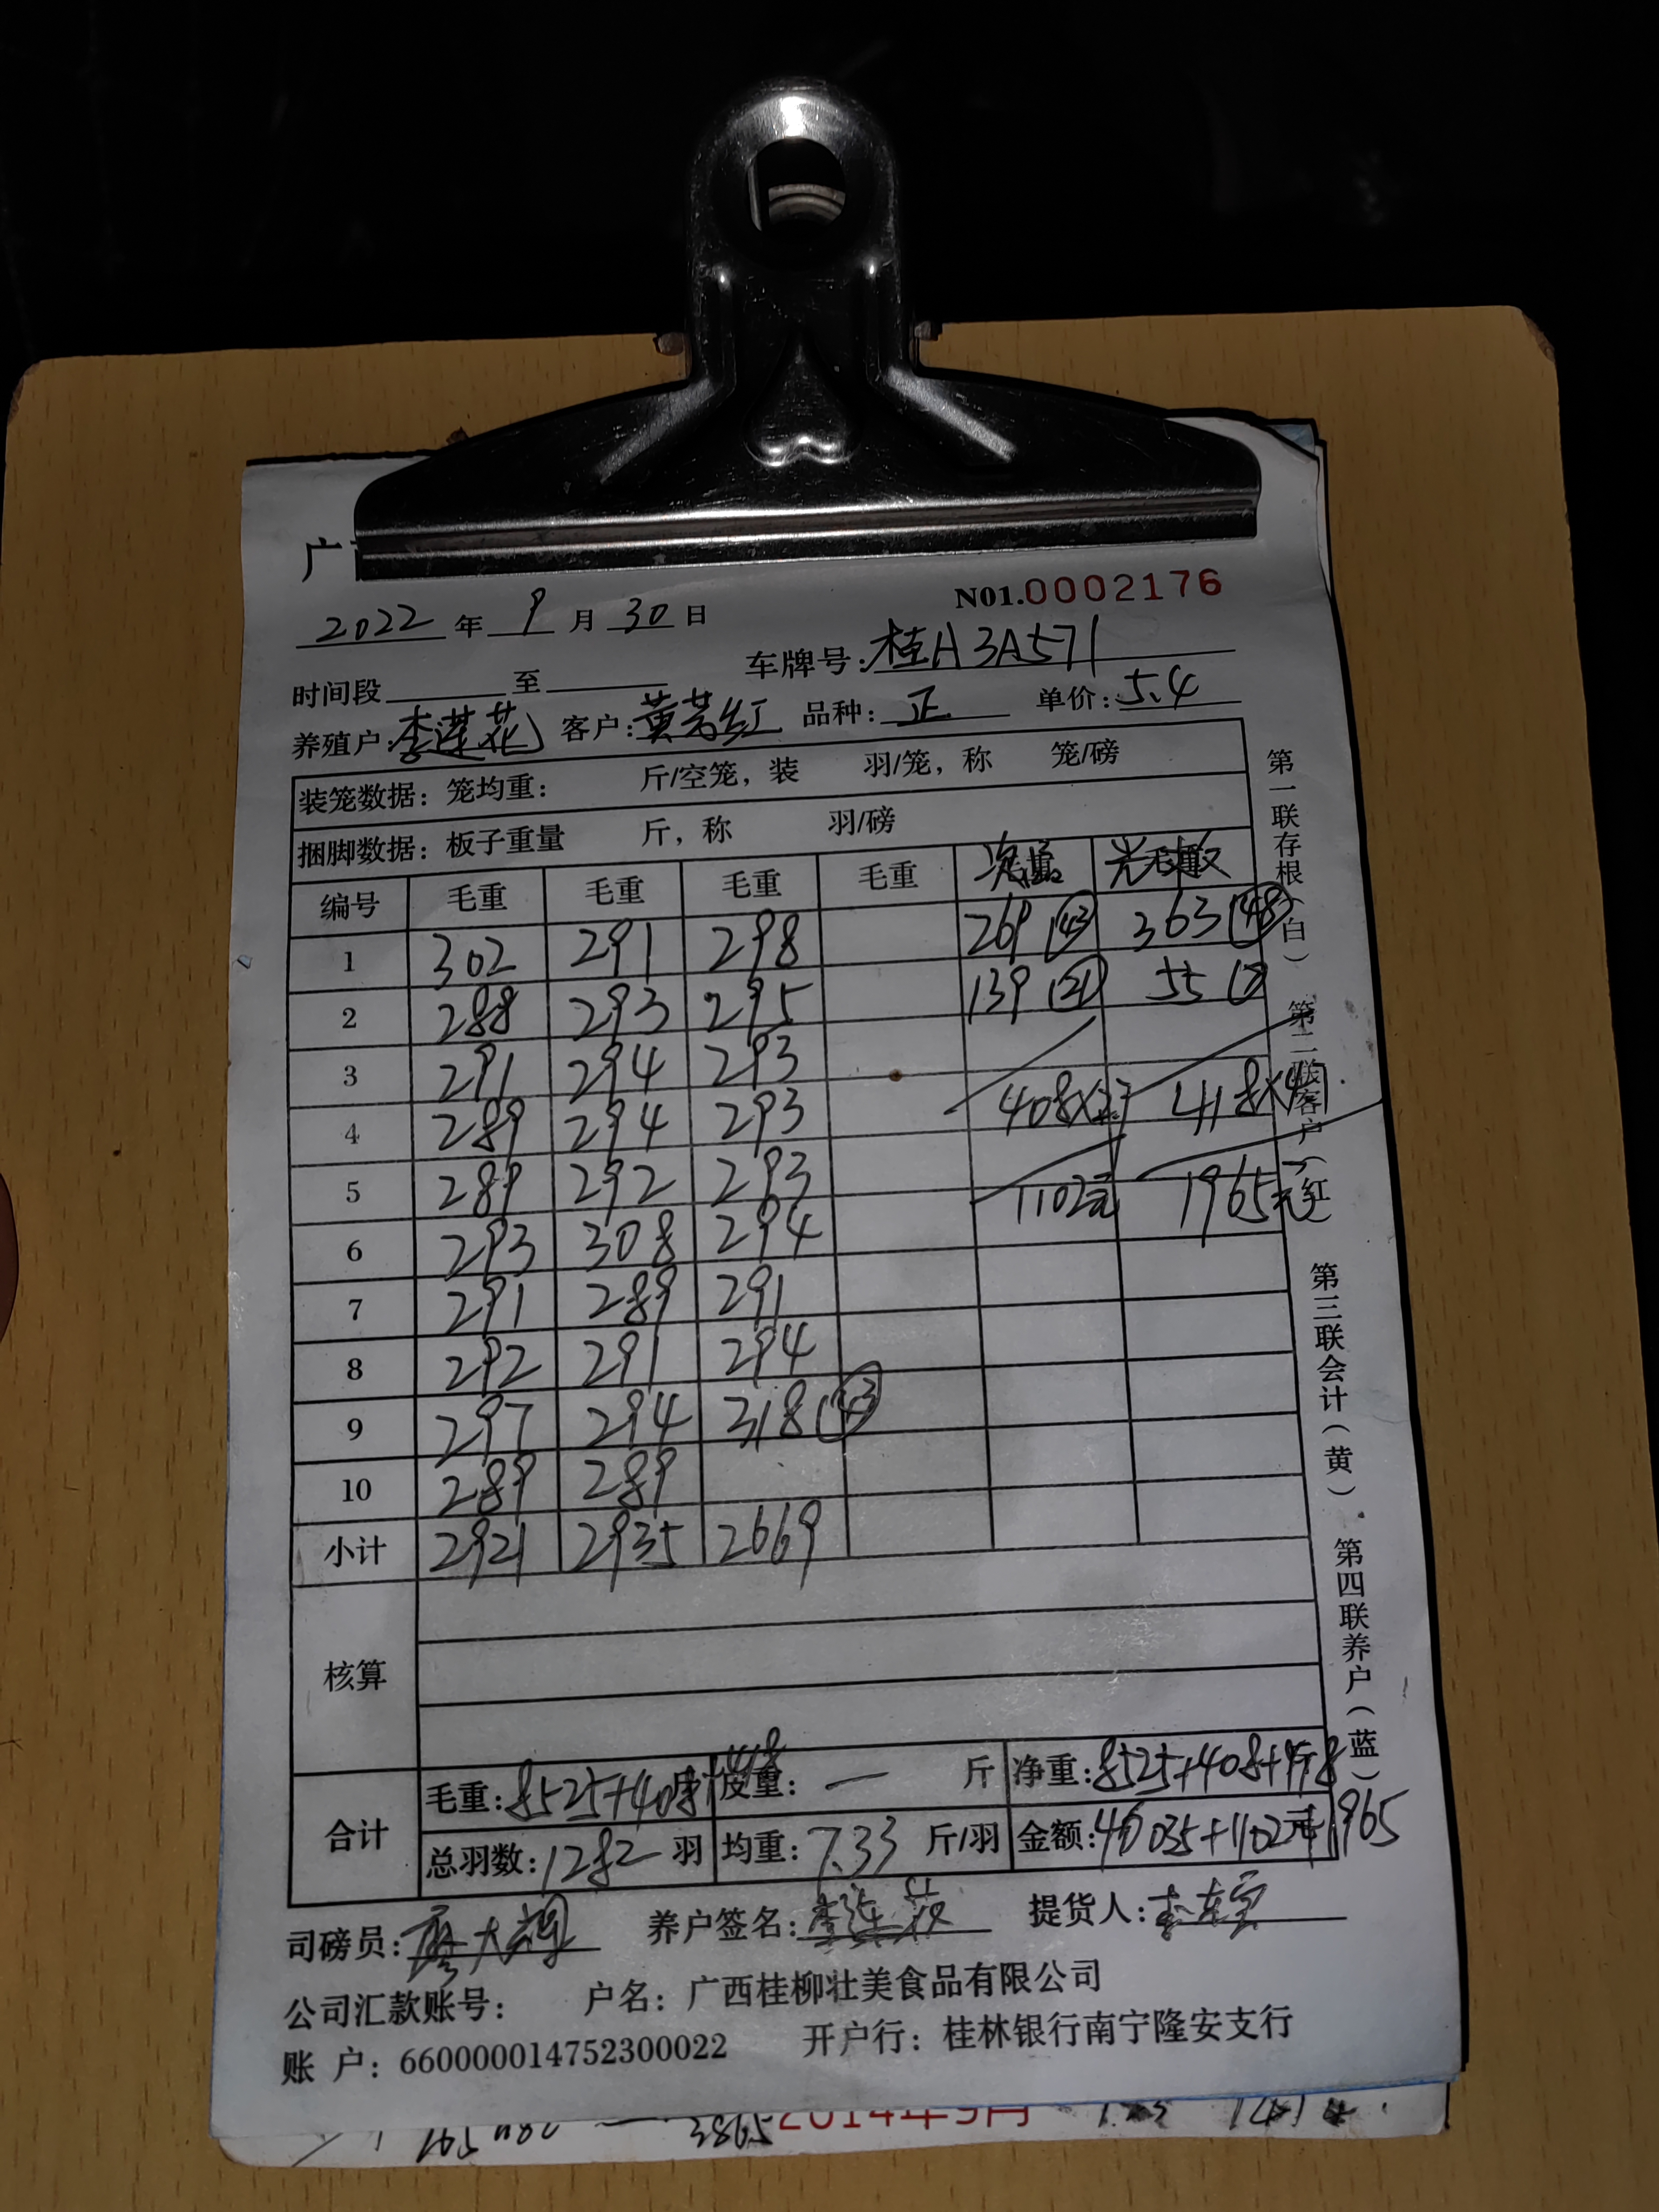 广
NO1.0002176
2022年9月30日
时间段 至 车牌号:桂A3A571
养殖户:李莲花 客户:黄芳红 品种:正 单价:5.4
装笼数据:笼均重: 斤/空笼,装 羽/笼,称 笼/磅
捆脚数据:板子重量 斤,称 羽/磅
编号 毛重 毛重 毛重 毛重
1 302 291 298 269 (43) 363 (48)
2 288 293 295 139 (21) 55 (7)
3 291 294 293
4 289 294 293 408×2.7 418×4.7
5 289 292 293 1102元 1965元
6 293 308 294
7 291 289 291
8 292 291 294
9 297 294 318 (43)
10 289 289
小计 2921 2935 2669
核算
合计 毛重:8525+408+418 皮重:— 斤 净重:8525+408+418
总羽数:1282羽 均重:7.33 斤/羽 金额:46035+1102+1965
司磅员:廖大 养户签名:李莲花 提货人:李
公司汇款账号: 户名:广西桂柳壮美食品有限公司
账 户:660000014752300022 开户行:桂林银行南宁隆安支行
第一联存根(白) 第二联客户(红) 第三联会计(黄) 第四联养户(蓝)
3865 2014年9月